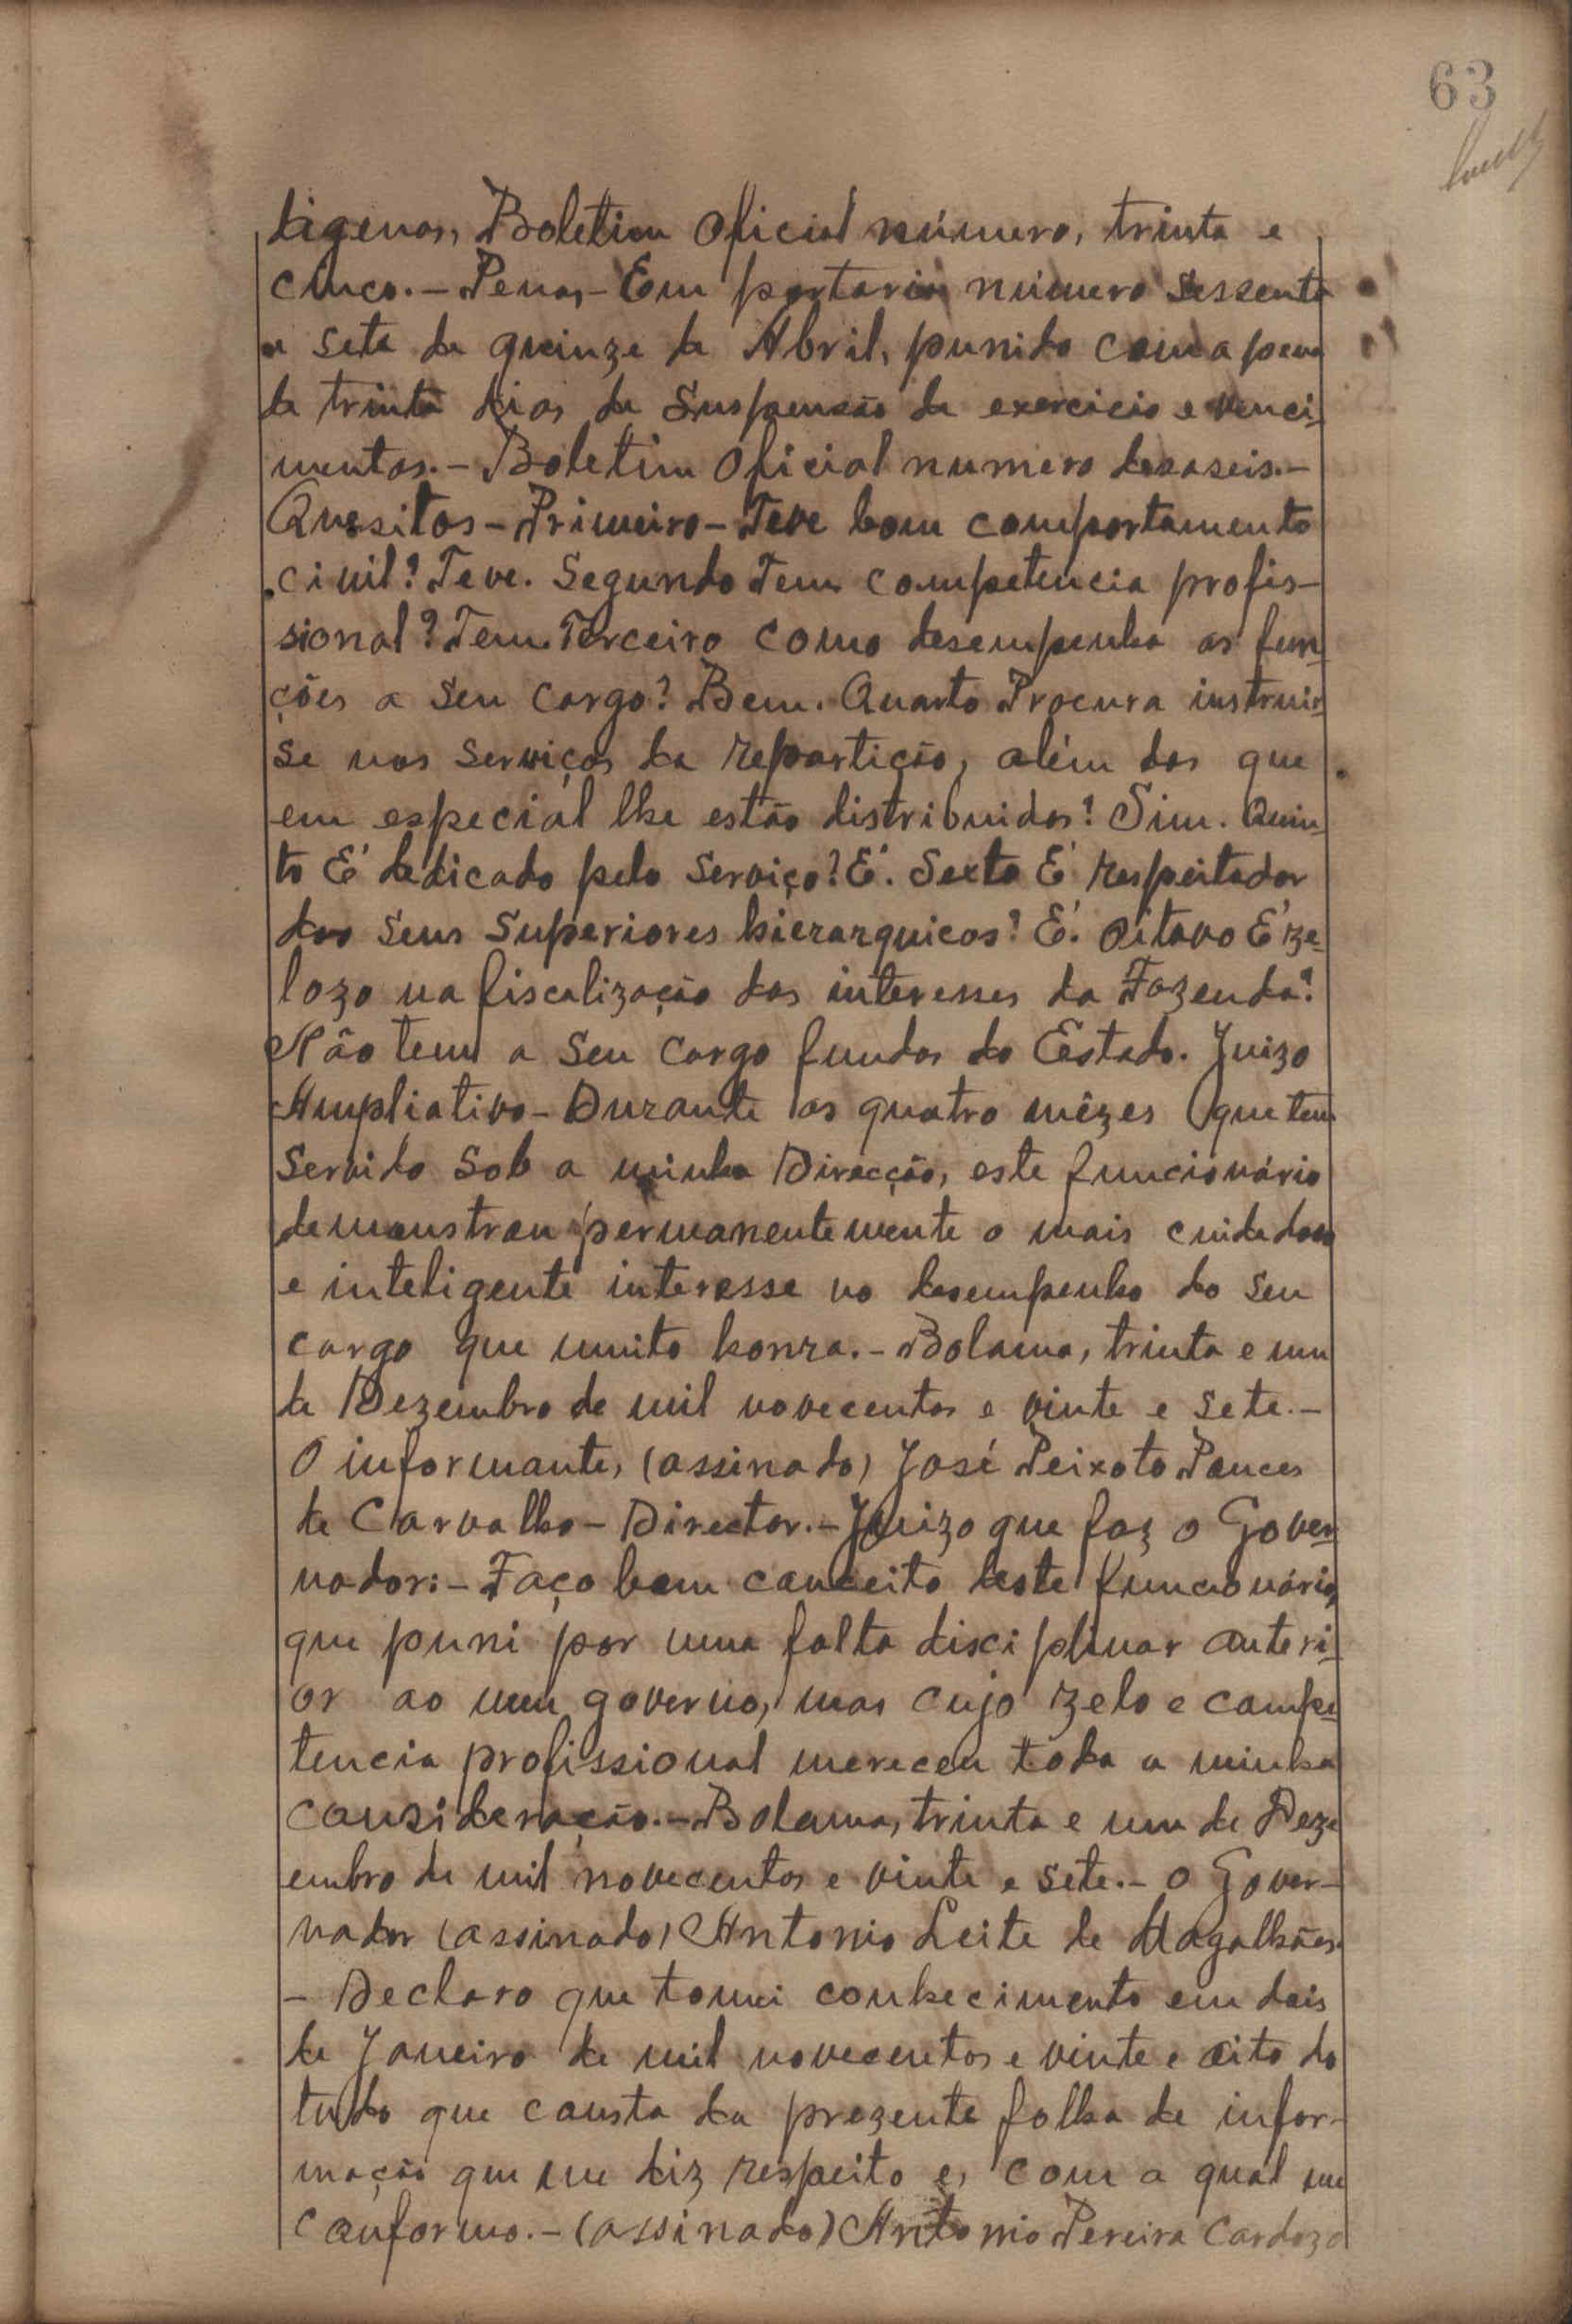 63
digenas, Boletim Oficial número, trinta e
cinco.- Penas,- Em portaria número sessenta
e sete de quinze de Abril, punido com a pena
de trinta dias de Suspensão de exercicio e venci-
mentos.- Boletim Oficial numero dezaseis.-
Quesitos - Primeiro - Teve bom comportamento
civil? Teve. Segundo Tem competencia profis-
sional? Tem. Terceiro Como desempenha as fun-
ções a seu cargo? Bem. Quarto Procura instruir-
se nos serviços da repartição, além dos que
em especial lhe estão distribuidos? Sim. Quin-
to É dedicado pelo serviço? É. Sexto É respeitador
dos seus Superiores hierarquicos? É. Oitavo É ze-
lozo na fiscalização dos interesses da Fazenda?
Não tem a seu cargo fundos do Estado. Juizo
Ampliativo - Durante os quatro mêzes que tem
servido sob a minha Direcção, este funcionário
demonstrou permanentemente o mais cuidadoso
e inteligente interesse no desempenho do seu
cargo que muito honra.- Bolama, trinta e um
de Dezembro de mil novecentos e vinte e sete.-
O informante, (assinado) José Peixoto Ponces
de Carvalho - Director.- Juizo que faz o Gover-
nador:- Faço bom conceito deste funcionário,
que puni por uma falta disciplinar anteri-
or ao meu governo, mas cujo zelo e compe-
tencia profissional mereceu toda a minha
consideração.- Bolama, trinta e um de Deze
embro de mil novecentos e vinte e sete.- O Gover-
nador (assinado) Antonio Leite de Magalhães.
- Declaro que tomei conhecimento em dois
de Janeiro de mil novecentos e vinte e oito do
tudo que consta da prezente folha de infor-
mação que me diz respeito e, com a qual me
conformo.- (assinado) Antonio Pereira Cardozo